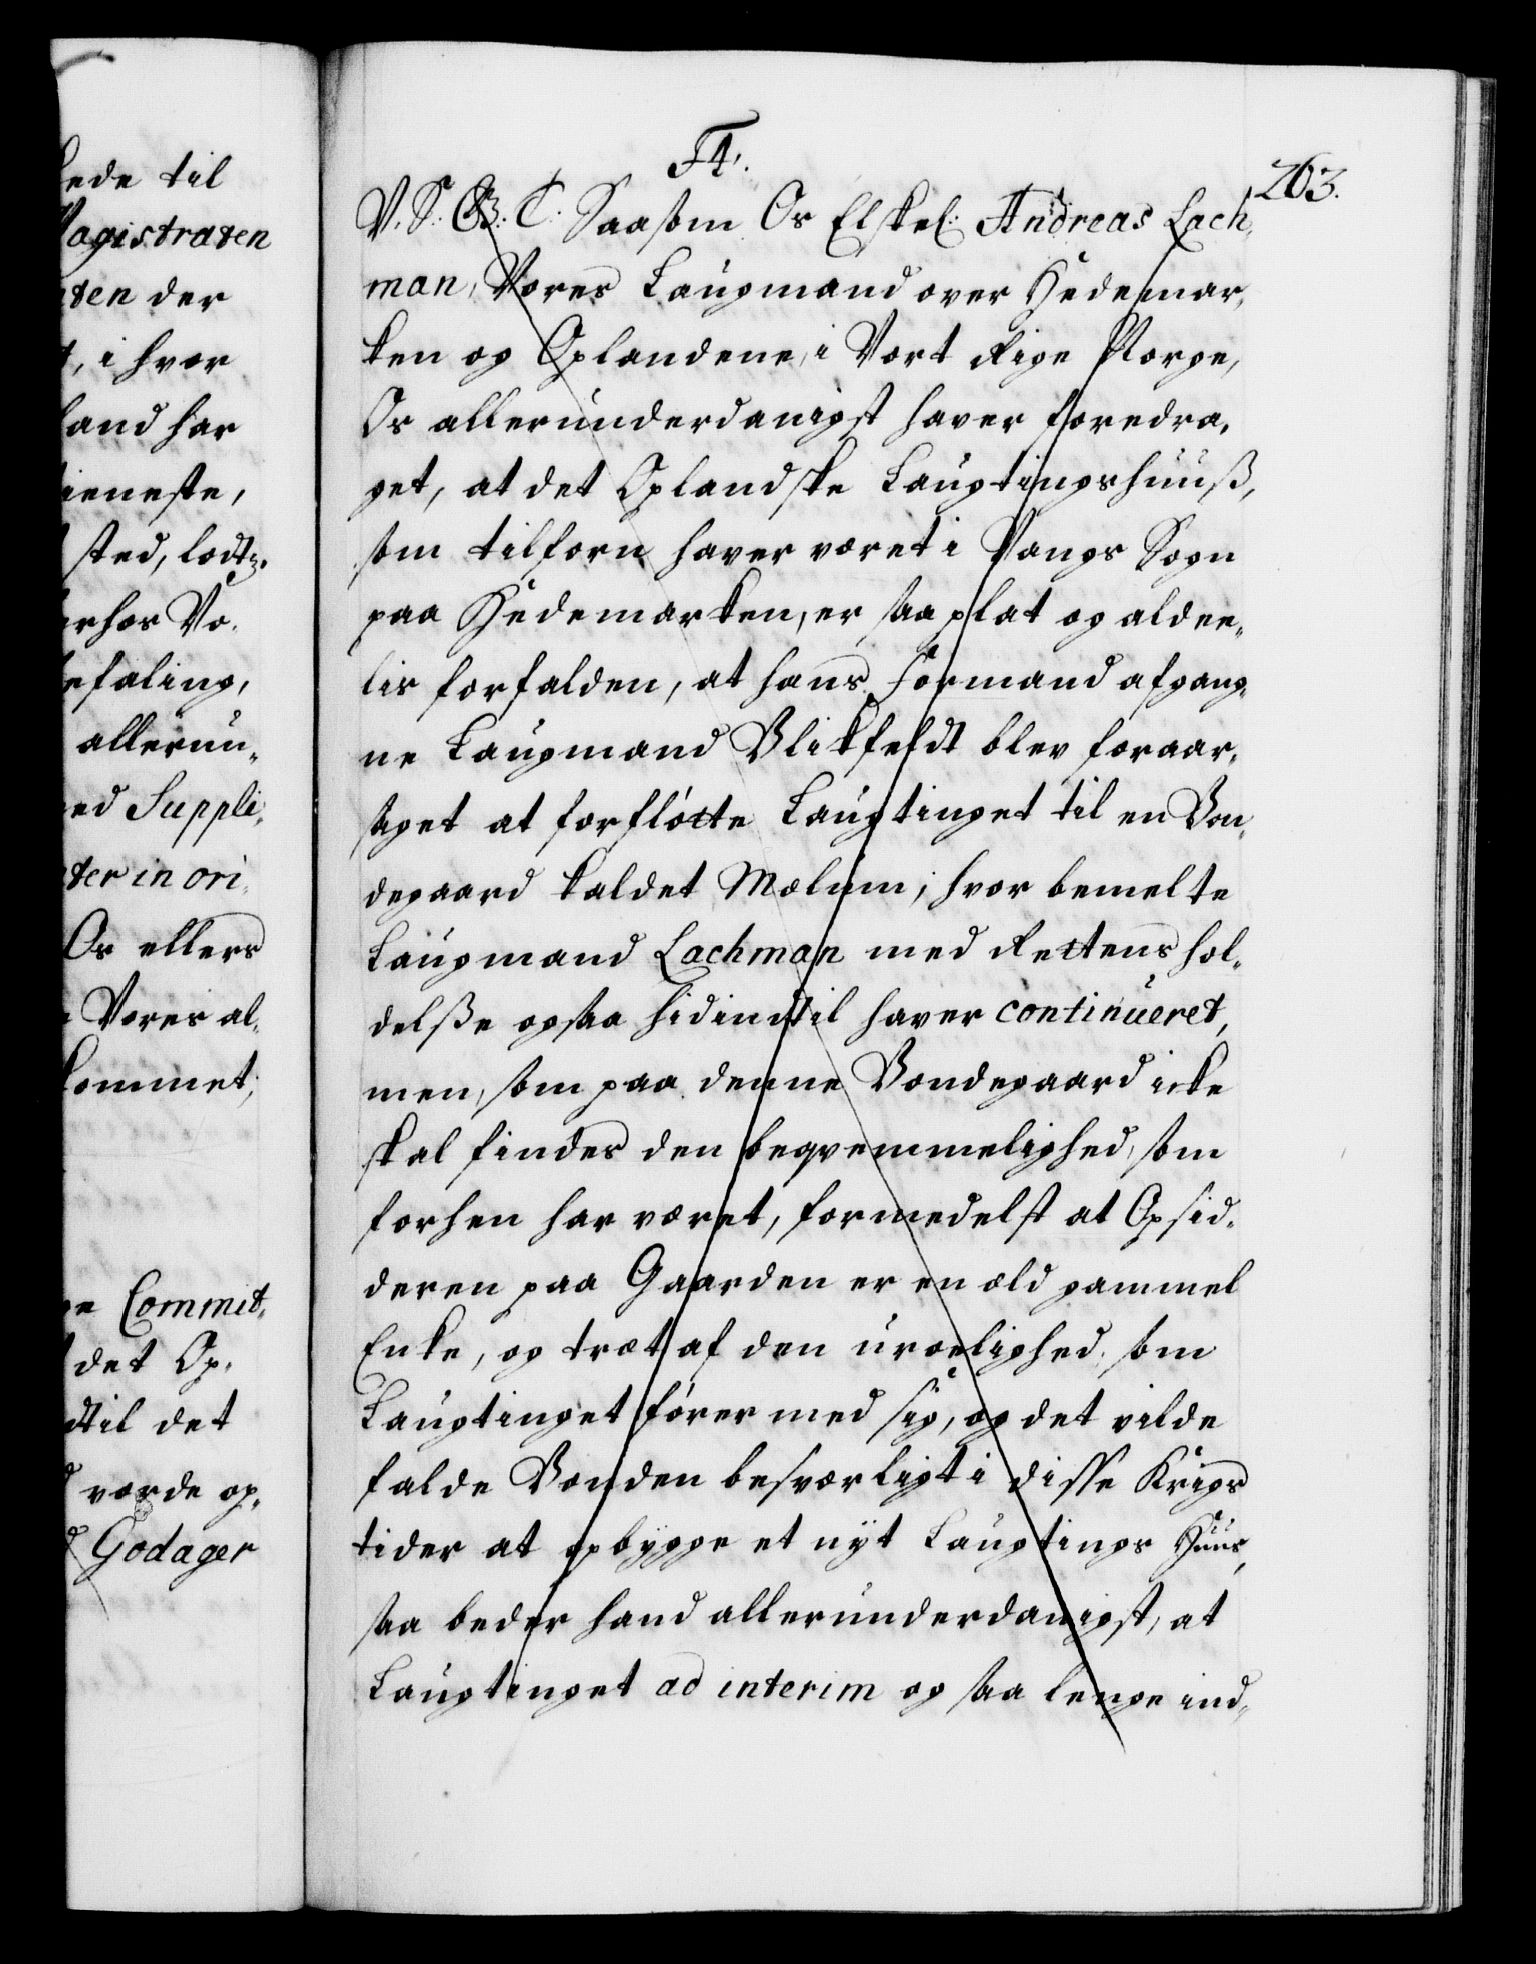 lede til
Magistraten
ten der
t, i hvor
land har
tieneste,
sted, lodtz.
erhos Vo-
befaling,
allerun-
ed Suppli-
ter in ori-
Os ellers
Vores al-
kommet;
ge Commit-
det Op-
dtil det
vorde op-
Godager
F4.
263.
V. S. G. T. Saasom Os Elskel: Andreas Lach-
man, Vores Laugmand over Hedemar-
ken og Oplandene, i Vort Rige Norge,
Os allerunderdanigst haver foredra-
get, at det Oplandske Laugtingshuuß,
som tilforn haver været i Vangs Sogn
paa Hedemarken, er saa plat og aldee-
lis forfalden, at hans Formand afgang-
ne Laugmand Blikfeldt blev foraar-
saget at forfløtte Laugtinget til en Bon-
degaard kaldet Mælum; hvor bemelte
Laugmand Lachman med Rettens hol-
delße ogsaa hidindtil haver continueret,
men, som paa denne Bondegaard icke
skal findes den beqvemmelighed, som
forhen har været, formedelst at Opsid-
deren paa Gaarden er en old gammel
Enke, og træt af den uroelighed, som
Laugtinget fører med sig, og det vilde
falde Bonden besværligt i disse Krigs
tider at opbygge et nyt Laugtings Huus,
saa beder hand allerunderdanigst, at
Laugtinget ad interim og saa lenge ind-